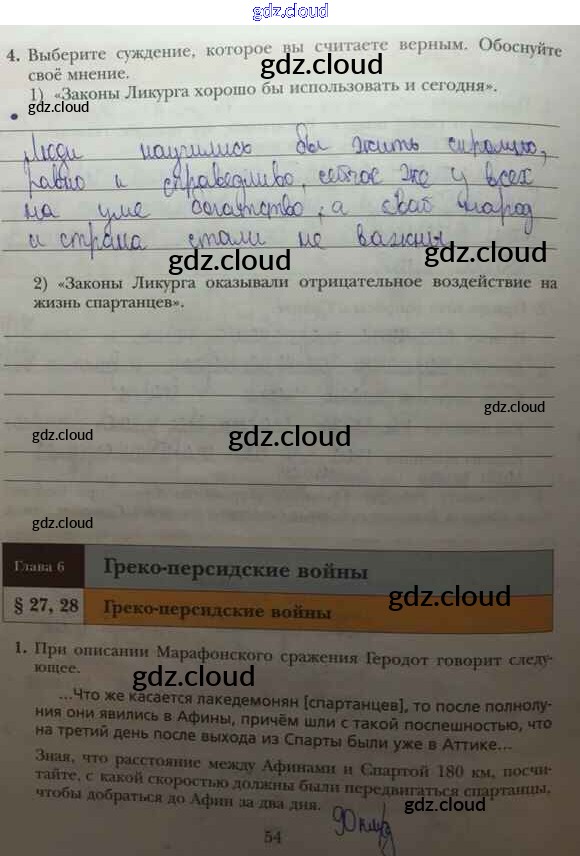 gdz.cloud
4. Выберите суждение, которое вы считаете верным. Обоснуйте
своё мнение.
gdz.cloud
1) «Законы Ликурга хорошо бы использовать и сегодня».
gdz.cloud
Люди научились бы жить скромно,
равно и справедливо, сейчас же у всех
на уме богатство, а свой народ
и страна стали не важны
gdz.cloud
gdz.cloud
2) «Законы Ликурга оказывали отрицательное воздействие на
жизнь спартанцев».
gdz.cloud
gdz.cloud
gdz.cloud
gdz.cloud
gdz.cloud
Глава 6 Греко-персидские войны
gdz.cloud
§ 27, 28 Греко-персидские войны
1. При описании Марафонского сражения Геродот говорит следу-
ющее.
gdz.cloud
...Что же касается лакедемонян [спартанцев], то после полнолу-
ния они явились в Афины, причём шли с такой поспешностью, что
на третий день после выхода из Спарты были уже в Аттике...
Зная, что расстояние между Афинами и Спартой 180 км, посчи-
тайте, с какой скоростью должны были передвигаться спартанцы,
чтобы добраться до Афин за два дня.
gdz.cloud
90 км/
54